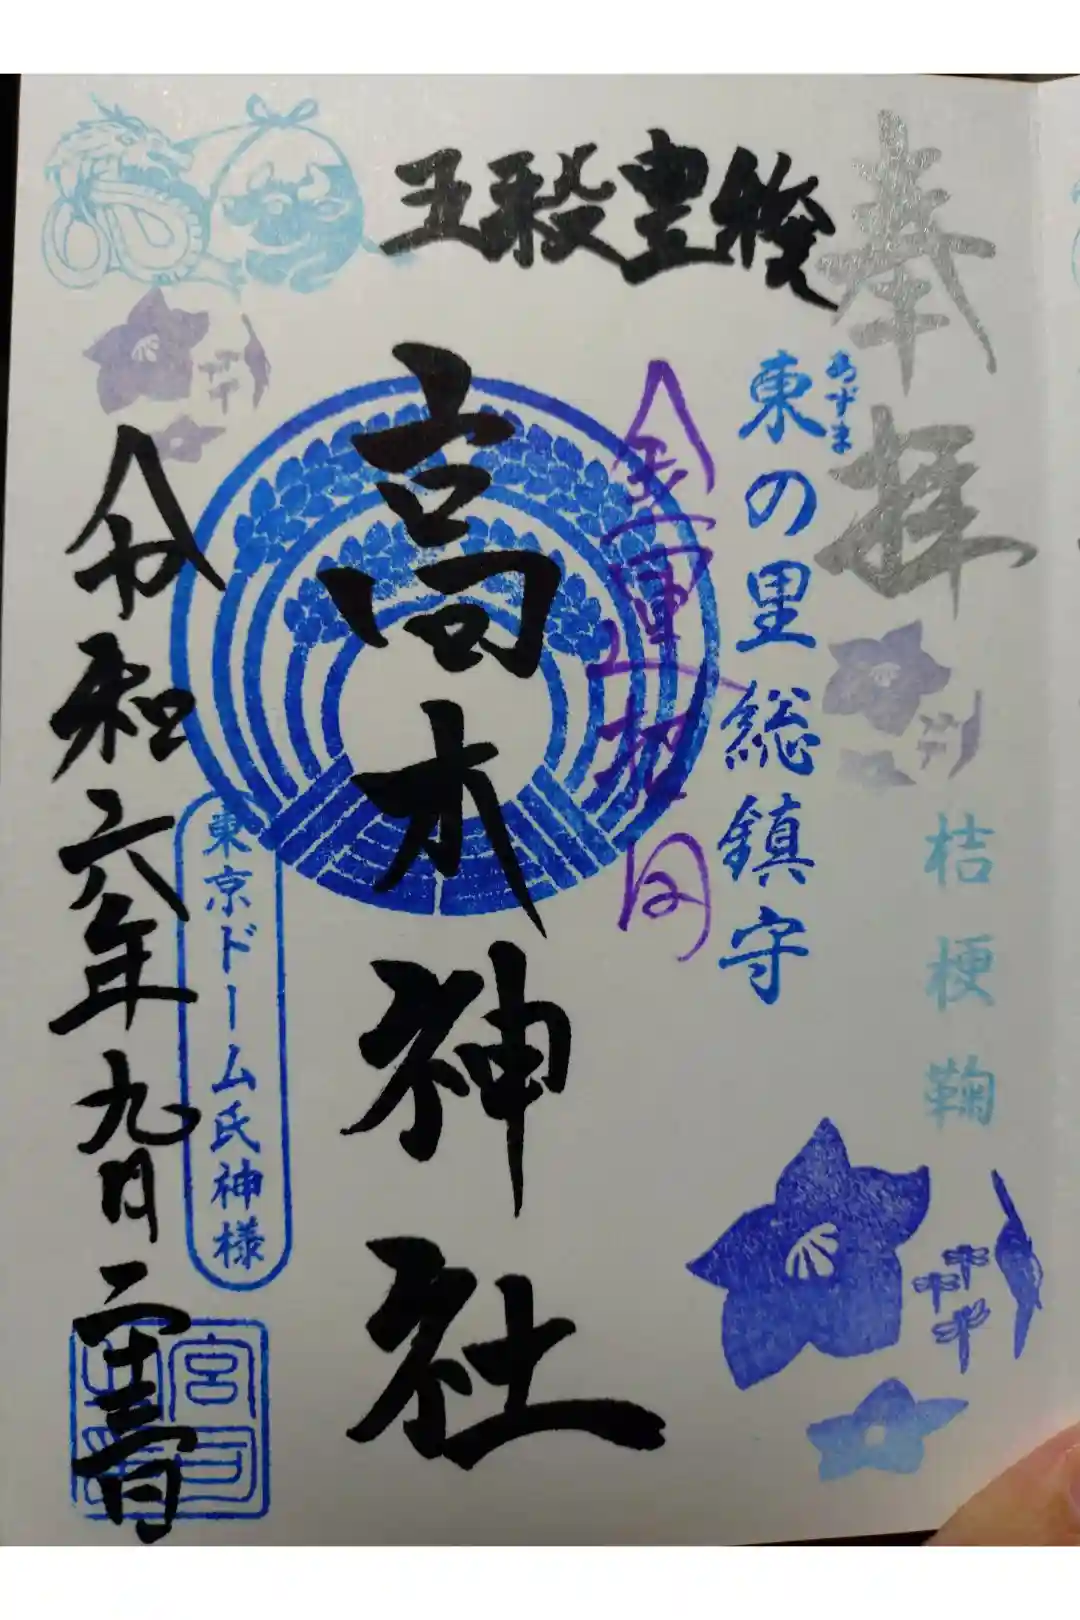 奉拝
五穀豊穣
東の里総鎮守
あずま
桔梗鞠
金運招
高木神社
東京ドーム氏神様
令和六年九月二十三日
宮司